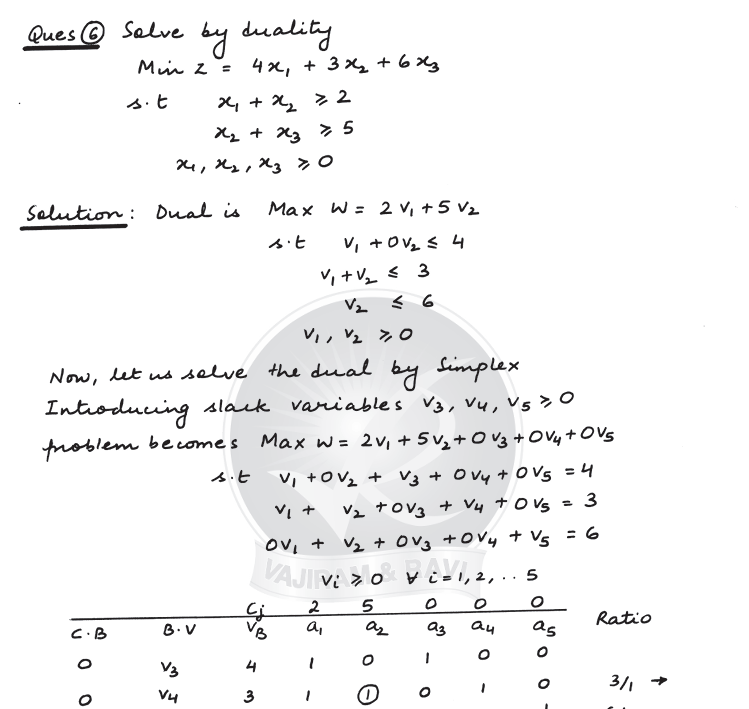 Ques ⑥ Solve by duality
Min Z = 4x₁ + 3x₂ + 6x₃
s.t x₁ + x₂ ≥ 2
x₂ + x₃ ≥ 5
x₁, x₂, x₃ ≥ 0
Solution: Dual is Max W = 2V₁ + 5V₂
s.t V₁ + 0V₂ ≤ 4
V₁ + V₂ ≤ 3
V₂ ≤ 6
V₁, V₂ ≥ 0
Now, let us solve the dual by Simplex
Introducing slack variables V₃, V₄, V₅ ≥ 0
problem becomes Max W = 2V₁ + 5V₂ + 0V₃ + 0V₄ + 0V₅
s.t V₁ + 0V₂ + V₃ + 0V₄ + 0V₅ = 4
V₁ + V₂ + 0V₃ + V₄ + 0V₅ = 3
0V₁ + V₂ + 0V₃ + 0V₄ + V₅ = 6
VAJIRAM & RAVI
Vi ≥ 0 ∀ i = 1, 2, .. 5
Cj 2 5 0 0 0
C.B B.V VB a₁ a₂ a₃ a₄ a₅ Ratio
0 V₃ 4 1 0 1 0 0
0 V₄ 3 1 ① 0 1 0 3/1 →